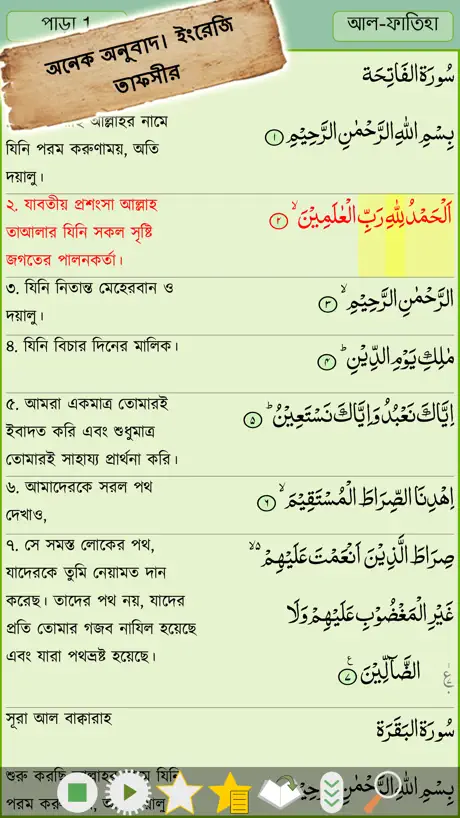 পাড়া 1
আল-ফাতিহা
অনেক অনুবাদ। ইংরেজি
তাফসীর
سُورَةُ الفَاتِحَة
আল্লাহর নামে
যিনি পরম করুণাময়, অতি
দয়ালু।
بِسْمِ اللهِ الرَّحْمٰنِ الرَّحِيْمِ ۝١
২. যাবতীয় প্রশংসা আল্লাহ
তাআলার যিনি সকল সৃষ্টি
জগতের পালনকর্তা।
اَلْحَمْدُ لِلّٰهِ رَبِّ الْعٰلَمِيْنَ ۙ ۝٢
৩. যিনি নিতান্ত মেহেরবান ও
দয়ালু।
الرَّحْمٰنِ الرَّحِيْمِ ۙ ۝٣
৪. যিনি বিচার দিনের মালিক।
مٰلِكِ يَوْمِ الدِّيْنِ ؕ ۝٤
৫. আমরা একমাত্র তোমারই
ইবাদত করি এবং শুধুমাত্র
তোমারই সাহায্য প্রার্থনা করি।
اِيَّاكَ نَعْبُدُ وَاِيَّاكَ نَسْتَعِيْنُ ؕ ۝٥
৬. আমাদেরকে সরল পথ
দেখাও,
اِهْدِنَا الصِّرَاطَ الْمُسْتَقِيْمَ ۙ ۝٦
৭. সে সমস্ত লোকের পথ,
যাদেরকে তুমি নেয়ামত দান
করেছ। তাদের পথ নয়, যাদের
প্রতি তোমার গজব নাযিল হয়েছে
এবং যারা পথভ্রষ্ট হয়েছে।
صِرَاطَ الَّذِيْنَ اَنْعَمْتَ عَلَيْهِمْ ۙ۵
غَيْرِ الْمَغْضُوْبِ عَلَيْهِمْ وَلَا
الضَّآلِّيْنَ ۝٧
সূরা আল বাক্বারাহ
سُورَةُ البَقَرَة
শুরু করছি আল্লাহর নামে যিনি
পরম করুণাময়, দয়ালু
بِسْمِ اللهِ الرَّحْمٰنِ الرَّحِيْمِ